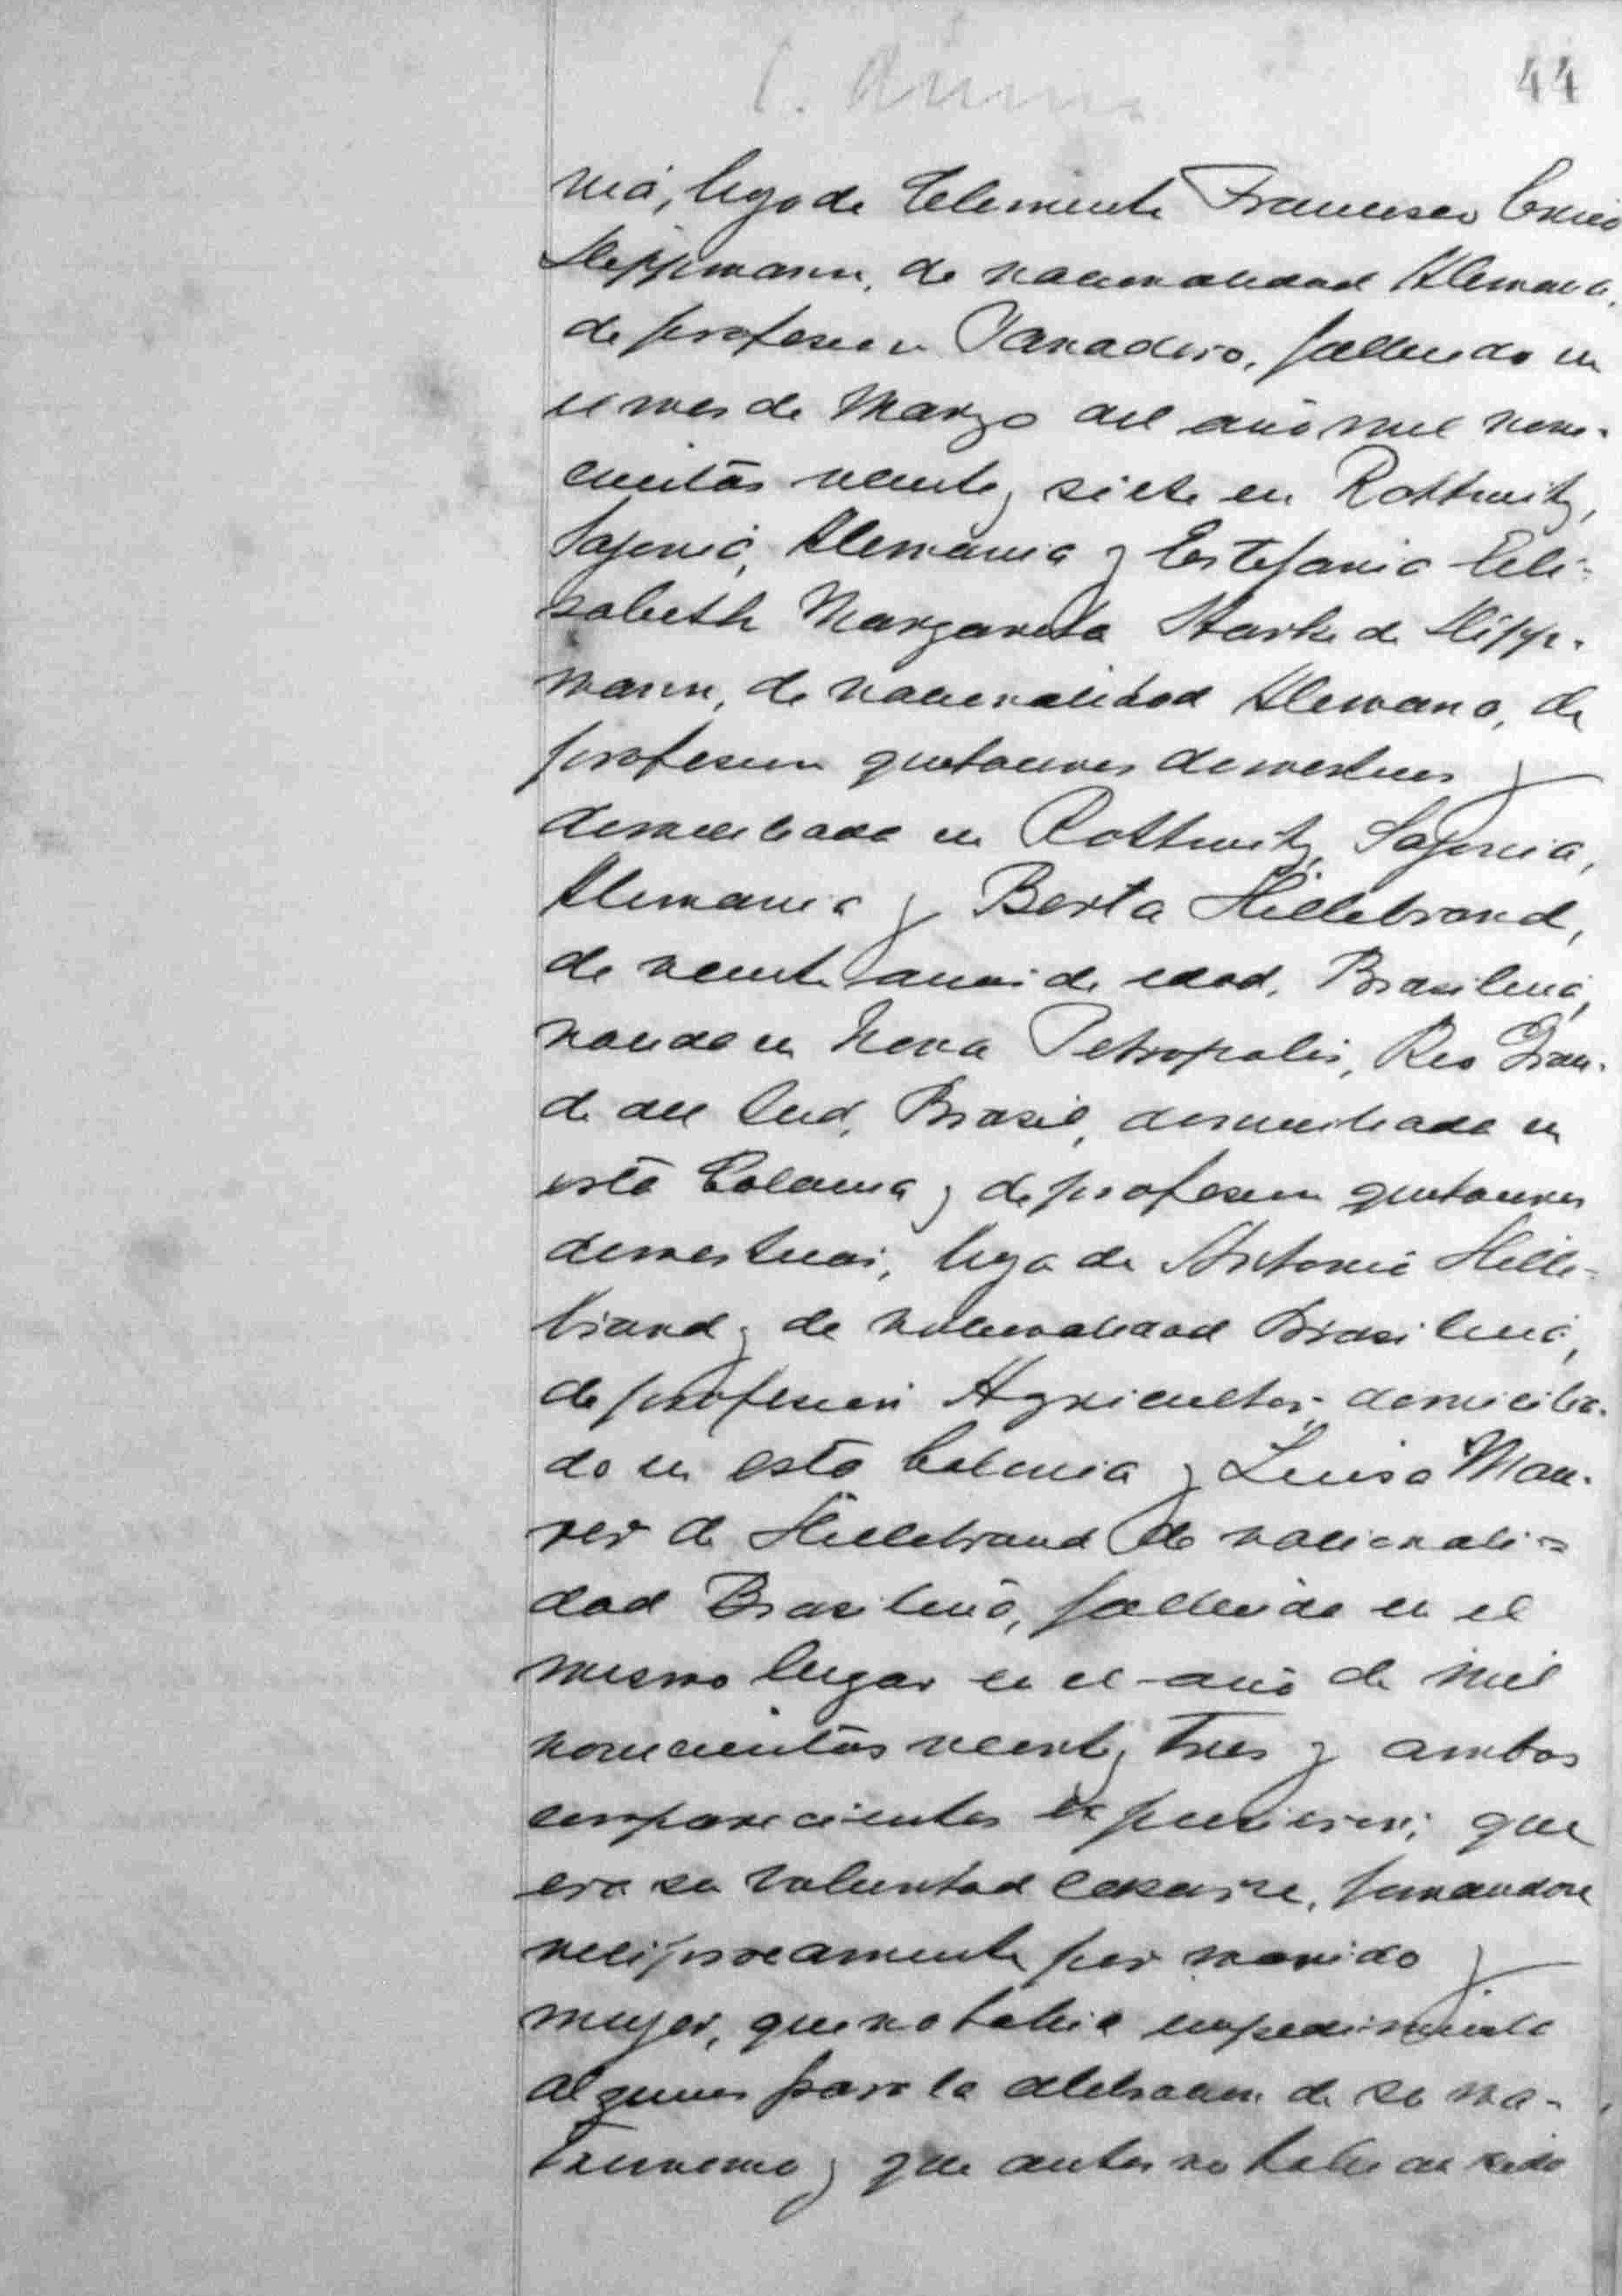 44
nia, hijo de Clemente Francisco Emilio
Hippmann, de nacionalidad Alemana,
de profesion Panadero, fallecido en
el mes de Marzo del año mil nove-
cientos veinte y siete en Rottwitz,
Sajonia, Alemania y Estefania Eli-
sabeth Margareta Starke de Hipp-
mann, de nacionalidad Alemana, de
profesion quehaceres domesticos y
domiciliada en Rottwitz, Sajonia,
Alemania y Berta Hillebrand,
de veinte años de edad, Brasileña,
nacida en Nova Petropolis, Rio Gran-
de del Sud, Brasil, domiciliada en
esta Colonia y de profesion quehaceres
domesticos, hija de Antonio Hille-
brand, de nacionalidad Brasileña,
de profesion Agricultor, domicilia-
do en esta Colonia y Luisa Mau-
rer de Hillebrand de nacionali-
dad Brasileña, fallecida en el
mismo lugar en el año de mil
novecientos veinte y tres y ambos
comparecientes expusieron; que
era su voluntad casarse, tomandose
reciprocamente por marido y
mujer, que no habia impedimento
alguno para la celebracion de su ma-
trimonio y que antes no habian sido